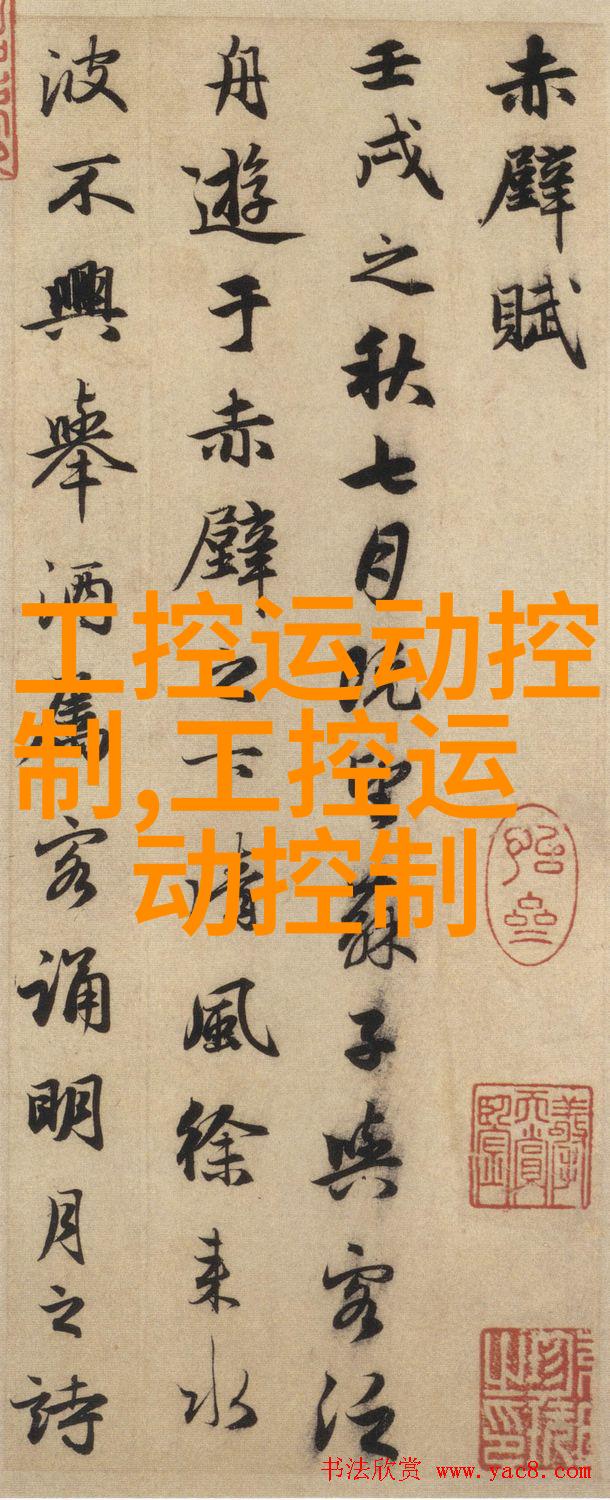 赤壁賦
壬戌之秋七月既望蘇子與客泛
舟遊于赤壁之下清風徐来水
波不興舉酒屬客誦明月之詩
工控运动控
制,工控运
动控制
书法欣赏 www.yac8.com